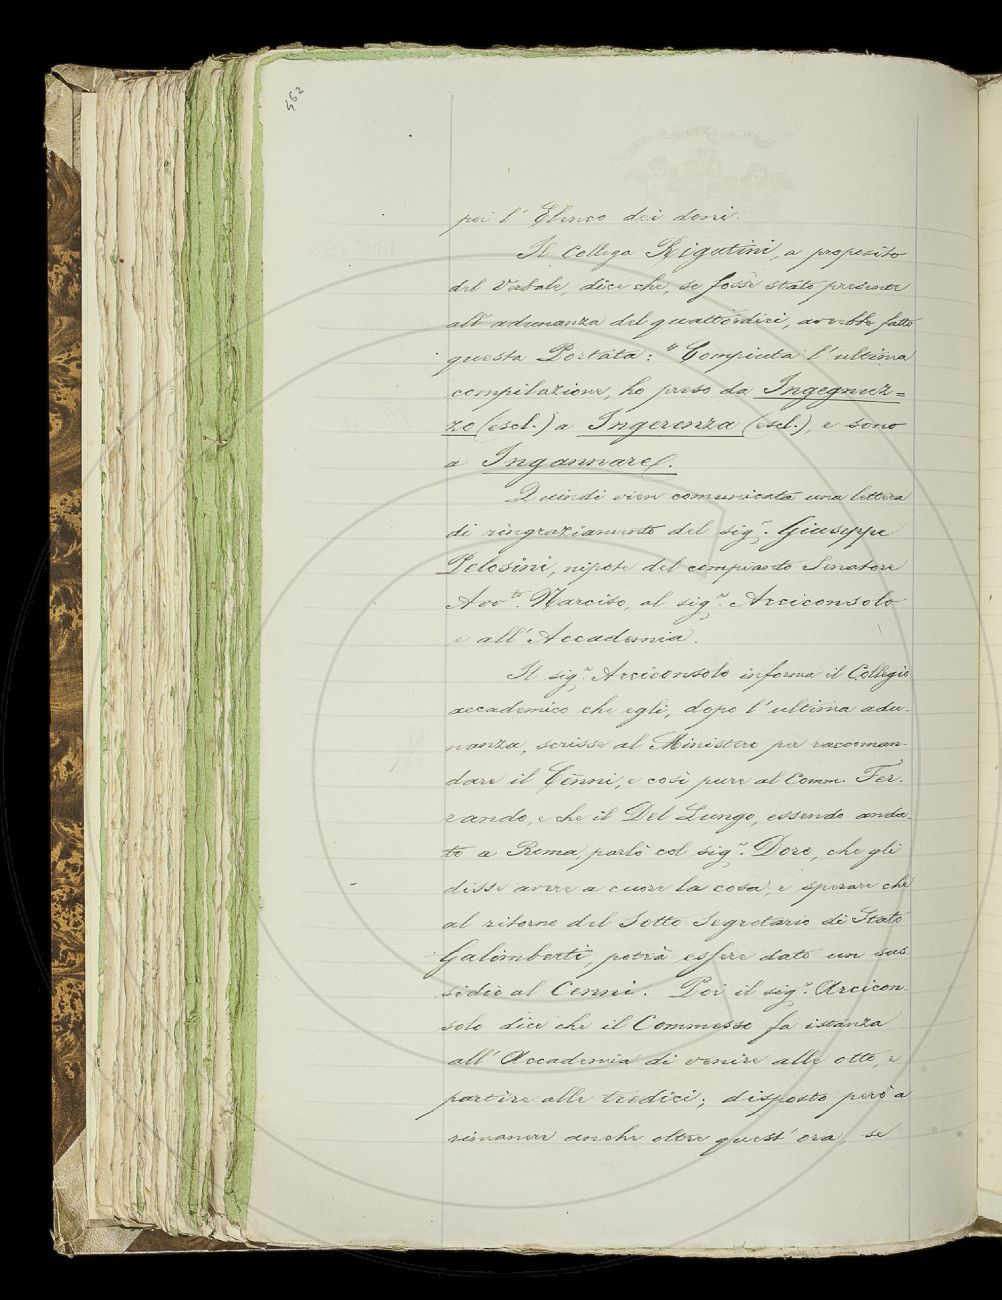 562
poi l' Elenco dei doni.
Il Collega Rigutini, a proposito
del Verbale, dice che, se fosse stato presente
all' adunanza del quattordici, avrebbe fatto
questa Portata: "Compiuta l' ultima
compilazione, ho preso da Ingegnuz=
zo (escl.) a Ingerenza (escl.), e sono
a Ingannare.
Quindi vien comunicata una lettera
di ringraziamento del sig.r Giuseppe
Pelosini, nipote del compianto Senatore
Avv.to Narciso, al sig.r Arciconsolo
e all' Accademia.
Il sig.r Arciconsolo informa il Collegio
accademico che egli, dopo l' ultima adu-
nanza, scrisse al Ministero per raccoman-
dare il Cenni, e così pure al Comm. Fer-
rando, e che il Del Lungo, essendo anda-
to a Roma, parlò col sig.r Doro, che gli
disse avere a cuore la cosa, e sperare che
al ritorno del Sotto Segretario di Stato
Galimberti, potrà essere dato un sus-
sidio al Cenni. Poi il sig.r Arcicon-
solo dice che il Commesso fa istanza
all' Accademia di venire alle otto, e
partire alle tredici; disposto però a
rimanere anche oltre quest' ora, se